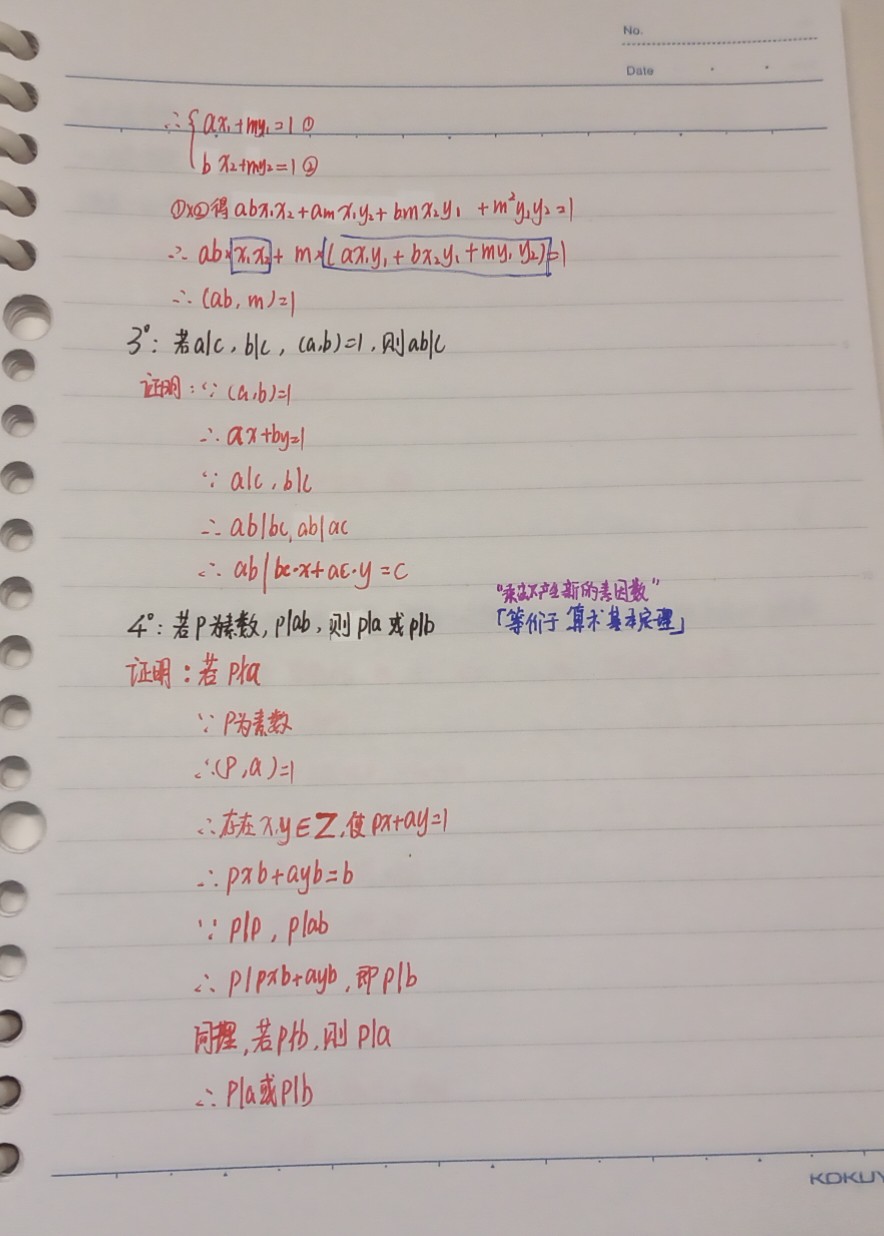 No.
Date
∴ { ax₁+my₁=1 ①
bx₂+my₂=1 ②
①×②得 abx₁x₂+amx₁y₂+bmx₂y₁ +m²y₁y₂=1
∴ ab·x₁x₂+ m×(ax₁y₁+bx₂y₁+my₁y₂)=1
∴ (ab, m)=1
3°: 若a|c, b|c, (a,b)=1, 则ab|c
证明: ∵ (a,b)=1
∴ ax+by=1
∵ a|c, b|c
∴ ab|bc, ab|ac
∴ ab|bc·x+ac·y=c
"乘法不产生新的素因数"
4°: 若P为素数, p|ab, 则p|a或p|b
「等价于 算术基本定理」
证明: 若p∤a
∵ P为素数
∴ (P,a)=1
∴ 存在x,y∈Z, 使px+ay=1
∴ pxb+ayb=b
∵ p|p, p|ab
∴ p|pxb+ayb, 即p|b
同理, 若p∤b, 则p|a
∴ p|a或p|b
KOKUY